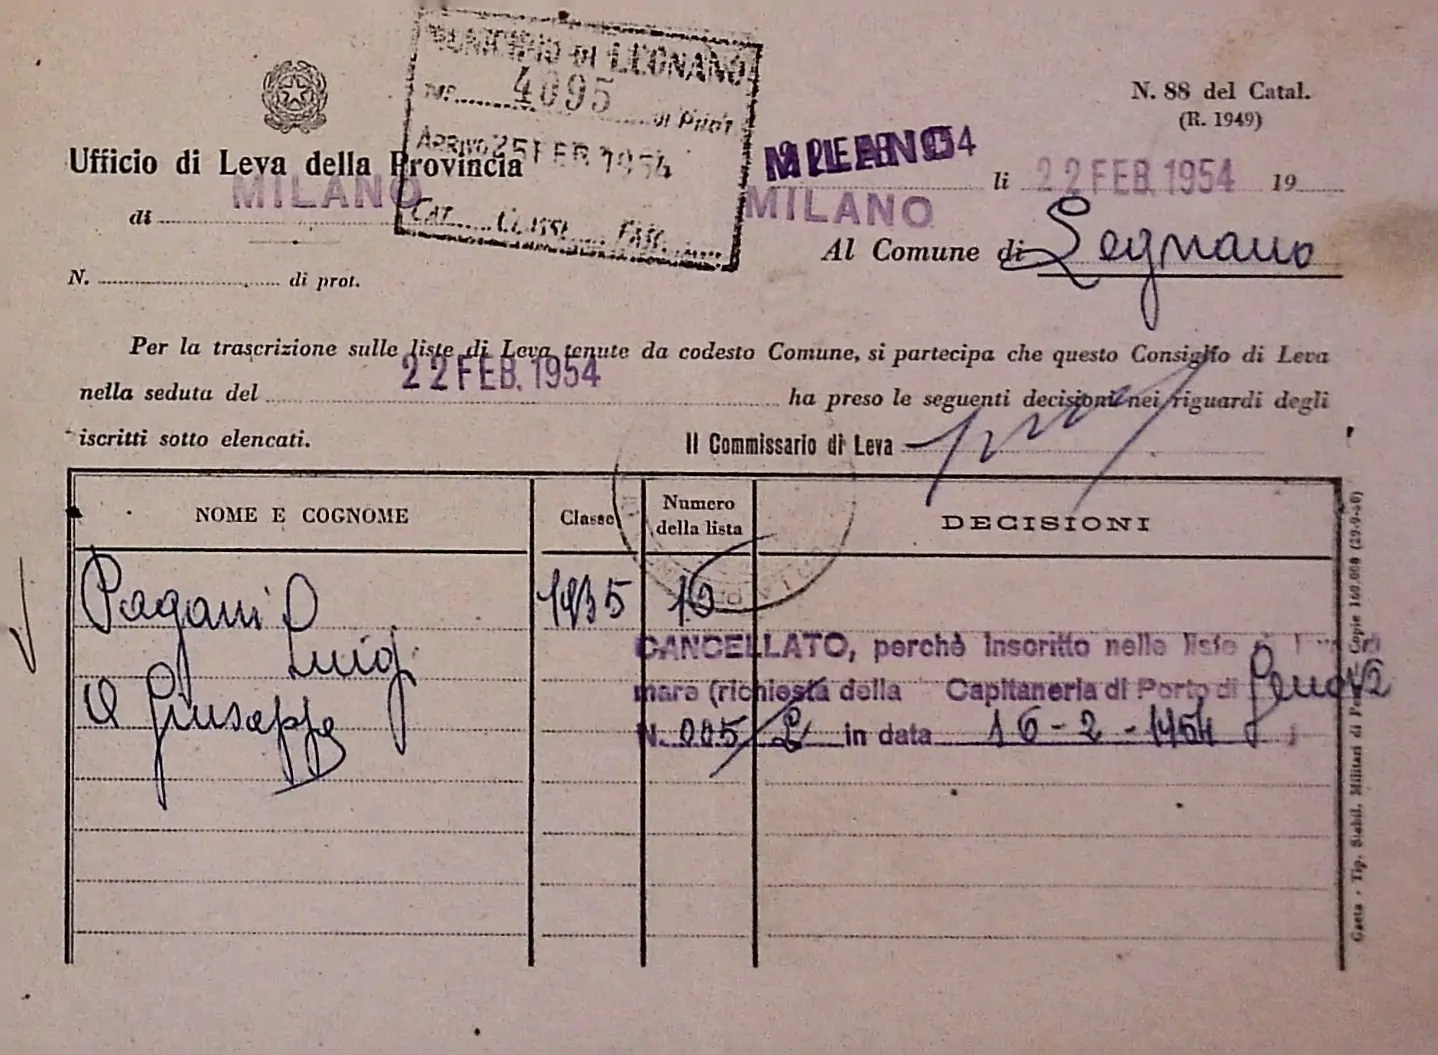 MUNICIPIO DI LEGNANO
N. 4095 di Prot.
ARRIVO 25 FEB 1954
CAT. CLASSE FASC.
N. 88 del Catal.
(R. 1949)
Ufficio di Leva della Provincia
di MILANO
MILANO
MILANO li 22 FEB. 1954 19
Al Comune di Legnano
N. di prot.
Per la trascrizione sulle liste di Leva tenute da codesto Comune, si partecipa che questo Consiglio di Leva
nella seduta del 22 FEB. 1954 ha preso le seguenti decisioni nei riguardi degli
iscritti sotto elencati.
Il Commissario di Leva
NOME E COGNOME Classe Numero della lista DECISIONI
Pagani 1935 10
Luigi
Giuseppe
CANCELLATO, perchè inscritto nelle liste di
mare (richiesta della Capitaneria di Porto di Genova
N. 005/ in data 16-2-1954
Gaeta - Tip. Stabil. Militari di Pena Copie 160.000